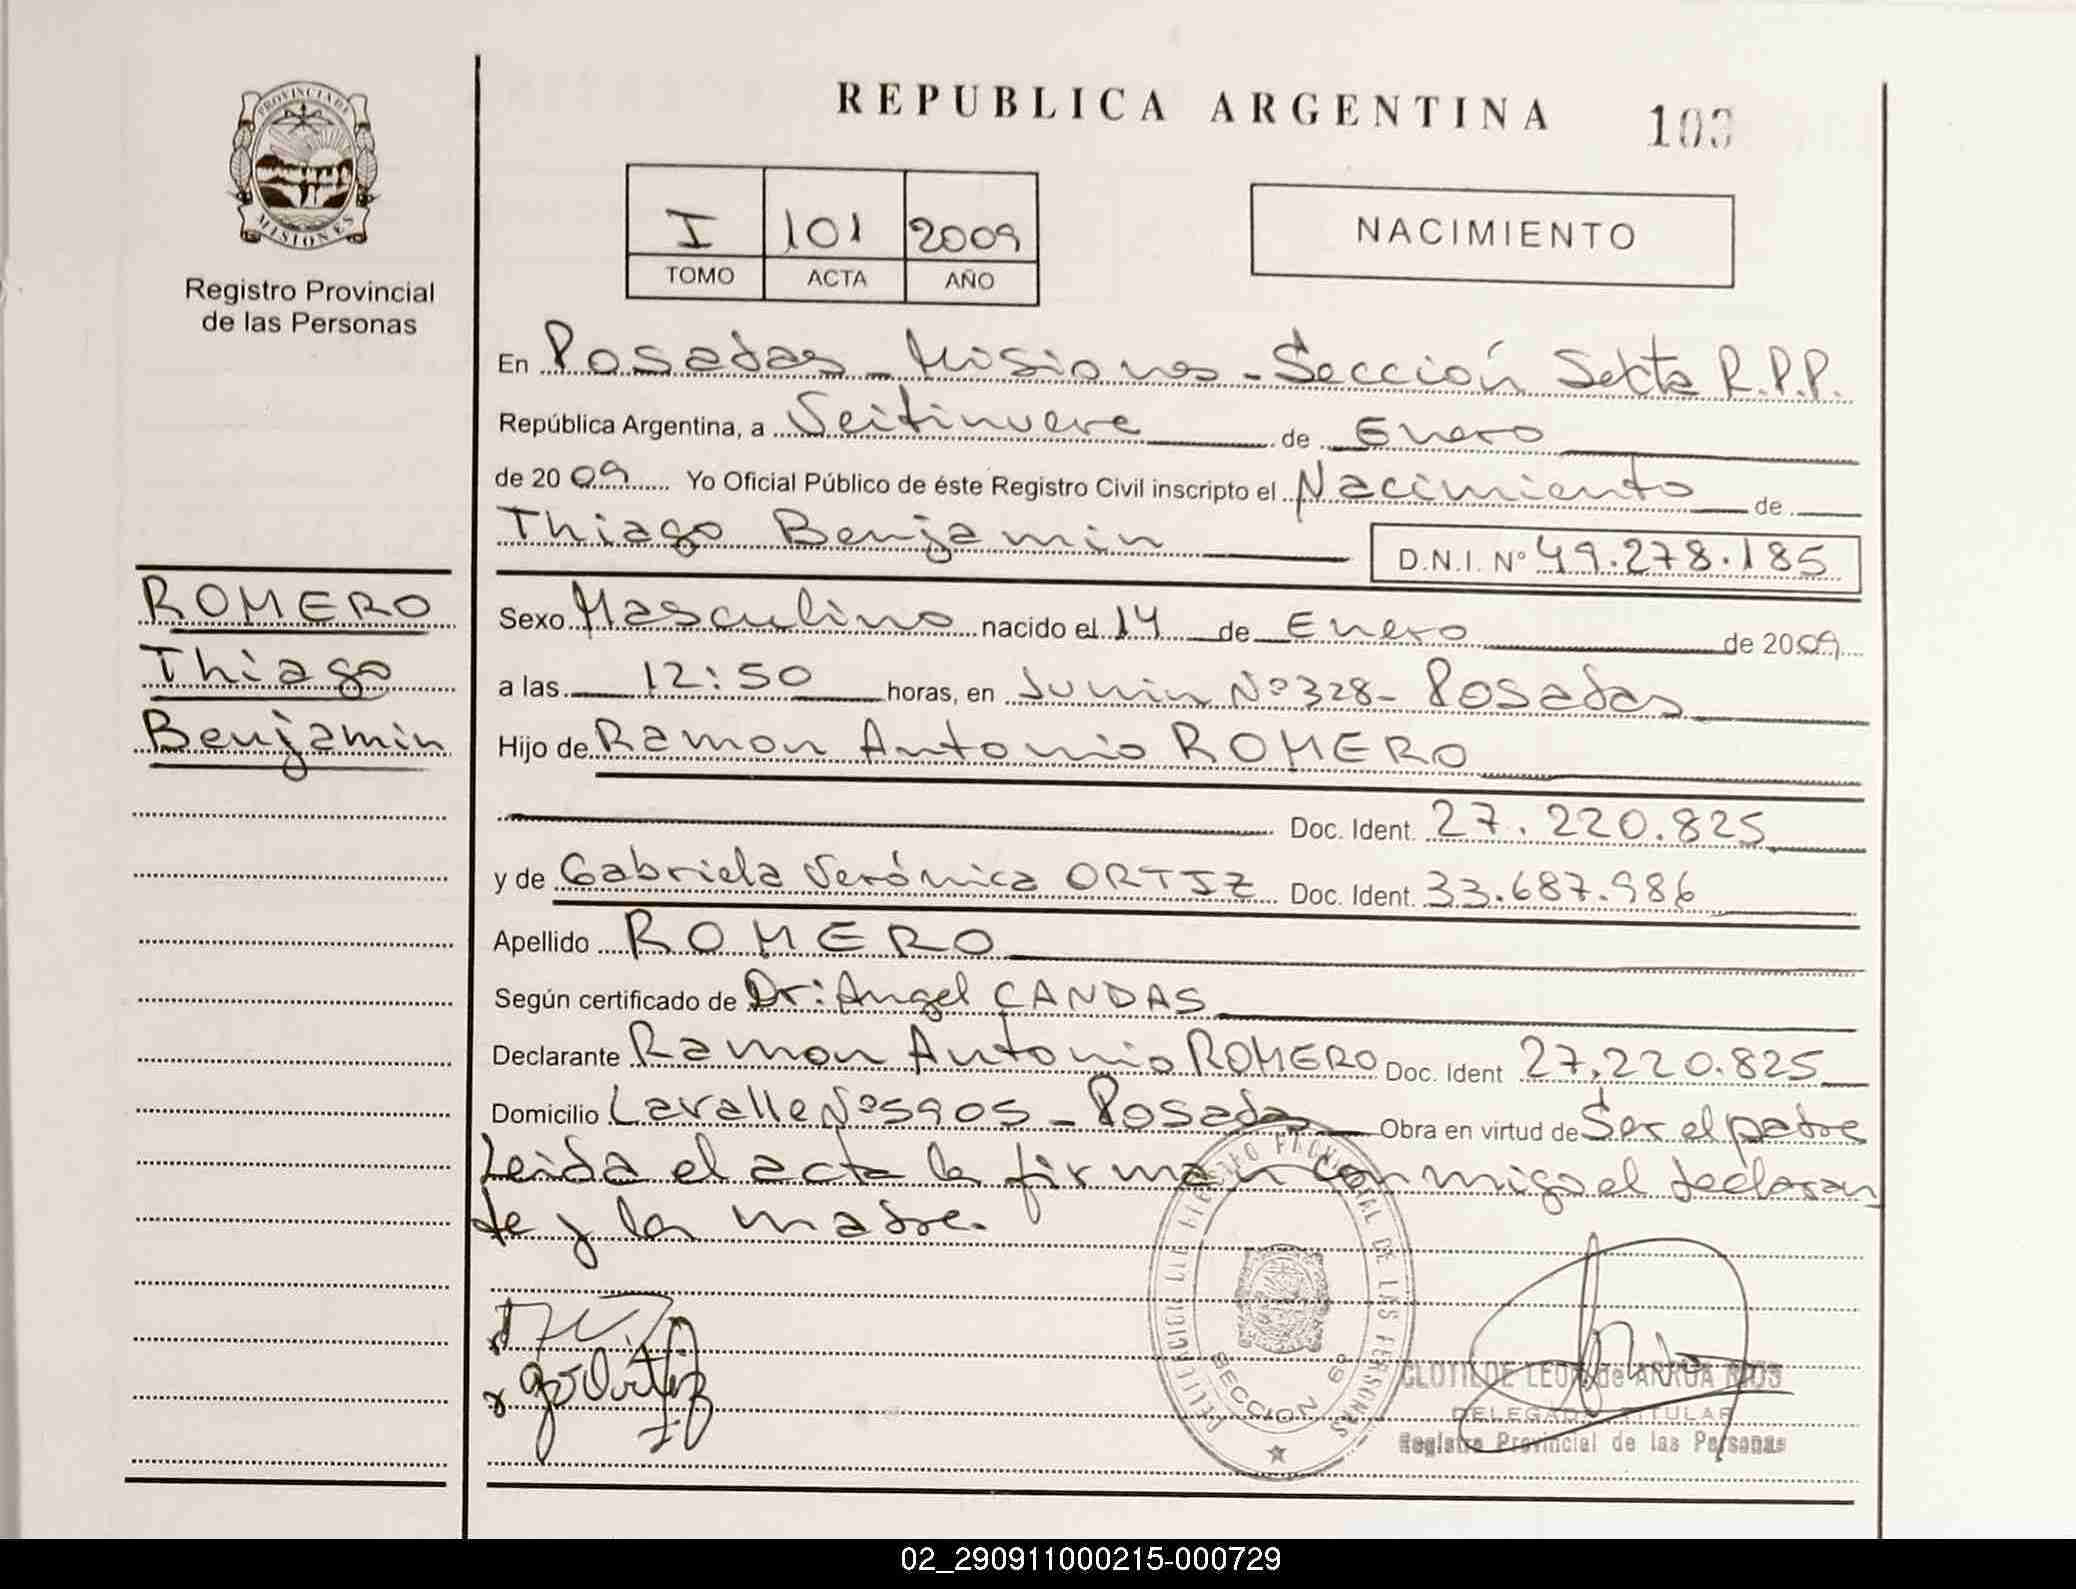 PROVINCIA DE
MISIONES
Registro Provincial
de las Personas
REPUBLICA ARGENTINA
103
I 101 2009
TOMO ACTA AÑO
NACIMIENTO
En Posadas - Misiones - Sección Sexta R.P.P.
República Argentina, a Veitinueve de Enero
de 2009 Yo Oficial Público de éste Registro Civil inscripto el Nacimiento de
Thiago Benjamin D.N.I. Nº 49.278.185
ROMERO
Thiago
Benjamin
Sexo Masculino nacido el 14 de Enero de 2009
a las 12:50 horas, en Junin Nº 328 - Posadas
Hijo de Ramon Antonio ROMERO
Doc. Ident. 27.220.825
y de Gabriela Verónica ORTIZ Doc. Ident. 33.687.986
Apellido ROMERO
Según certificado de Dr: Angel CANDAS
Declarante Ramon Antonio ROMERO Doc. Ident 27.220.825
Domicilio Lavalle Nº 5905 - Posadas Obra en virtud de Ser el padre
Leida el acta la firman conmigo el declaran
te y la madre.
REGISTRO PROVINCIAL DE LAS PERSONAS
SECCION 6ª
CLOTILDE LEON de ARRUA RIOS
DELEGADA TITULAR
Registro Provincial de las Personas
02_290911000215-000729